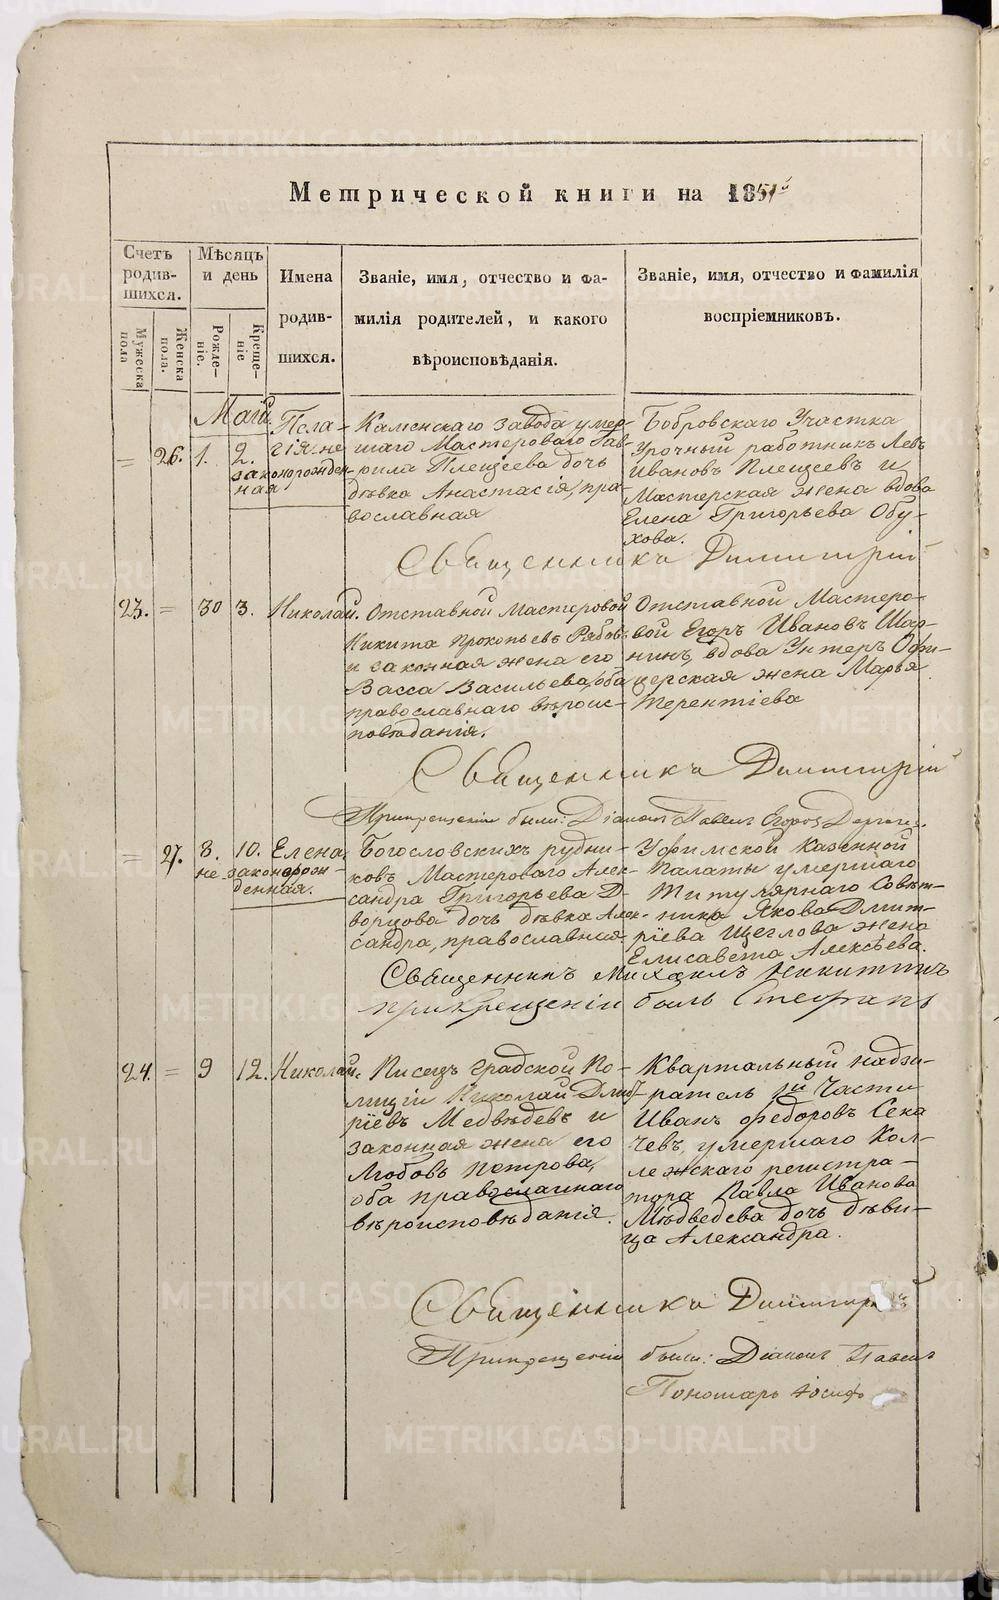 Метрической книги на 1851й
Счетъ родив- шихся.
Мѣсяцъ и день
Имена родив- шихся.
Званіе, имя, отчество и фа-
милія родителей, и какого
вѣроисповѣданія.
Званіе, имя, отчество и фамилія
воспріемниковъ.
Мужеска пола
Женска пола.
Рожде- ніе.
Креще- ніе
Маій.
= 26. 1. 2.
Пела-
гія не
законорожден-
ная
Каменскаго завода умер-
шаго Мастероваго Гав-
рила Плещеева дочь
дѣвка Анастасія, пра-
вославная
Бобровскаго Участка
Урочный работникъ Левъ
Ивановъ Плещеевъ и
Мастерская жена вдова
Елена Григорьева Обу-
хова.
Священникъ Димитрій
23. = 30 3. Николай.
Отставной Мастеровой
Никита Прокопьевъ Рябовъ
и законная жена его
Васса Васильева, оба
православнаго вѣроис-
повѣданія.
Отставной Мастеро-
вой Егоръ Ивановъ Шар-
нинъ, вдова Унтеръ Офи-
церская жена Марья
Терентіева
Священникъ Димитрій
При крещеніи были: Діаконъ Павелъ Егоров
= 27. 8. 10. Елена,
не законорож-
денная.
Богословскихъ рудни-
ковъ Мастероваго Алек-
сандра Григорьева Д-
ворцова дочь дѣвка Алек-
сандра, православная
Уфимской Казенной
Палаты умершаго
Титулярнаго Совѣт-
ника Якова Дмит-
ріева Щеглова жена
Елисавета Алексѣева.
Священникъ Михаилъ Никитинъ
при крещеніи былъ Стефанъ
24. = 9 12. Николай.
Писецъ Градской По-
лиціи Николай Дмит-
ріевъ Медвѣдевъ и
законная жена его
Любовь Петрова,
оба православнаго
вѣроисповѣданія.
Квартальный надзи-
ратель 1й Части
Иванъ Федоровъ Сека
чевъ, умершаго Кол-
лежскаго регистра-
тора Павла Иванова
Мѣдведева дочь дѣви-
ца Александра.
Священникъ Димитрій
При крещеніи были: Діаконъ Павелъ
Пономарь Іосифъ
METRIKI.GASO-URAL.RU